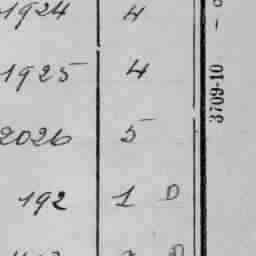 1924 4
1925 4
2026 5
192 1 D
3709-10